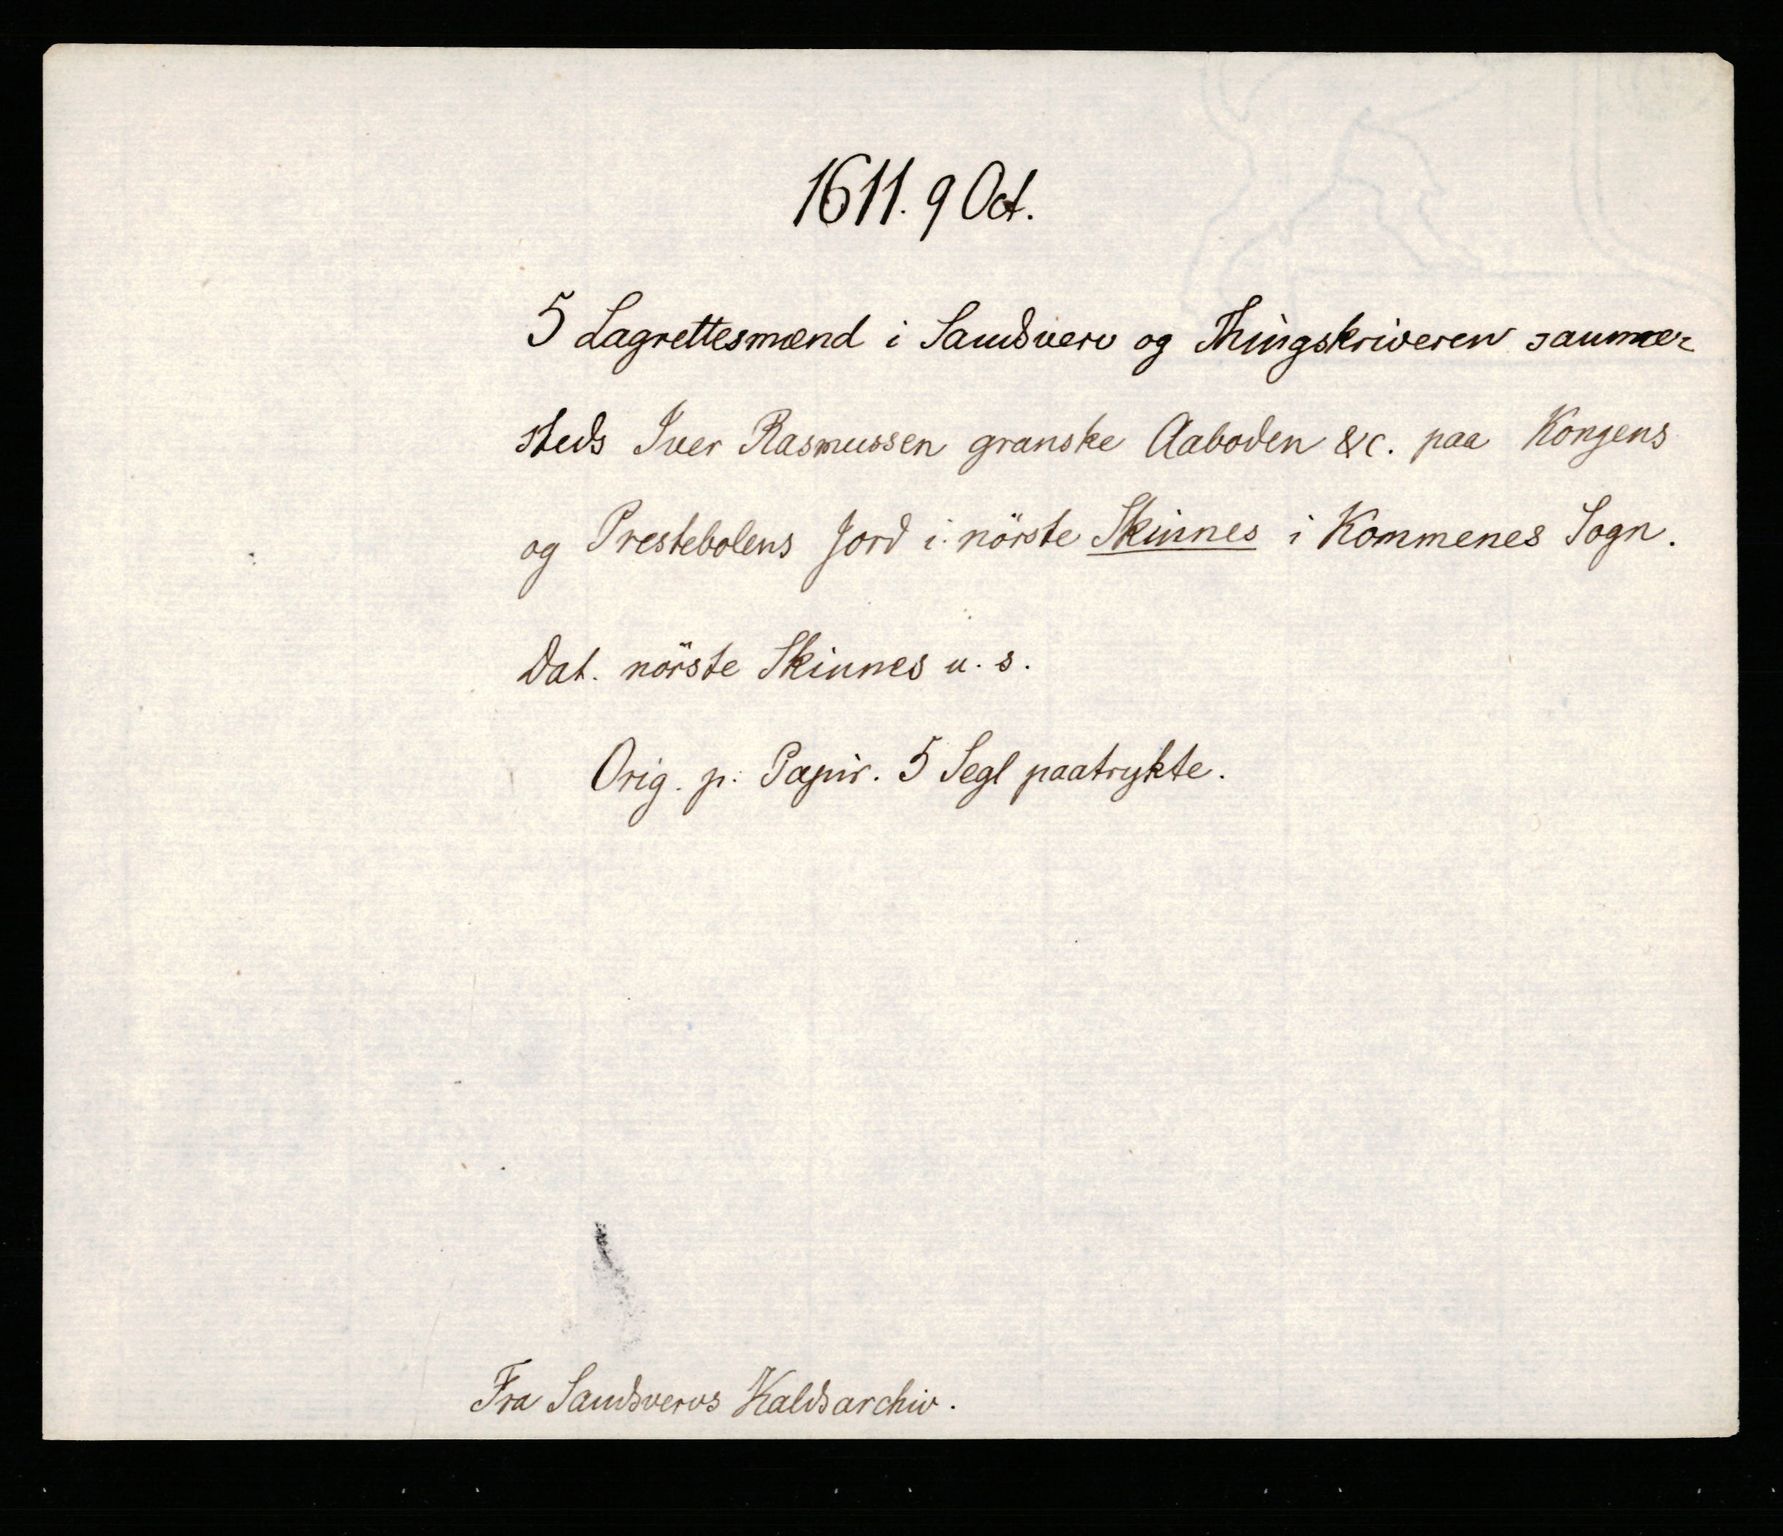 1611. 9 Oct.
5 Lagrettesmænd i Sandsverv og Thingskriveren samme-
steds Iver Rasmussen granske Aaboden &c. paa Kongens
og Prestebolens Jord i nörste Skinnes i Kommenes Sogn.
Dat. nörste Skinnes u. s.
Orig. p. Papir. 5 Segl paatrykte.
Fra Sandsvervs Kaldsarchiv.